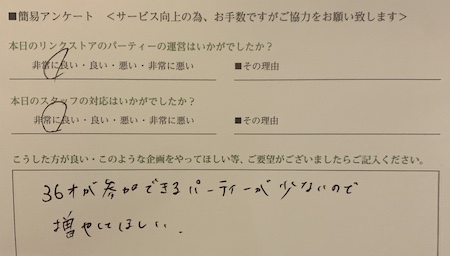 ■簡易アンケート　＜サービス向上の為、お手数ですがご協力をお願い致します＞
本日のリンクストアのパーティーの運営はいかがでしたか？
非常に良い・良い・悪い・非常に悪い　■その理由
本日のスタッフの対応はいかがでしたか？
非常に良い・良い・悪い・非常に悪い　■その理由
こうした方が良い・このような企画をやってほしい等、ご要望がございましたらご記入ください。
36才が参加できるパーティーが少ないので
増やしてほしい.